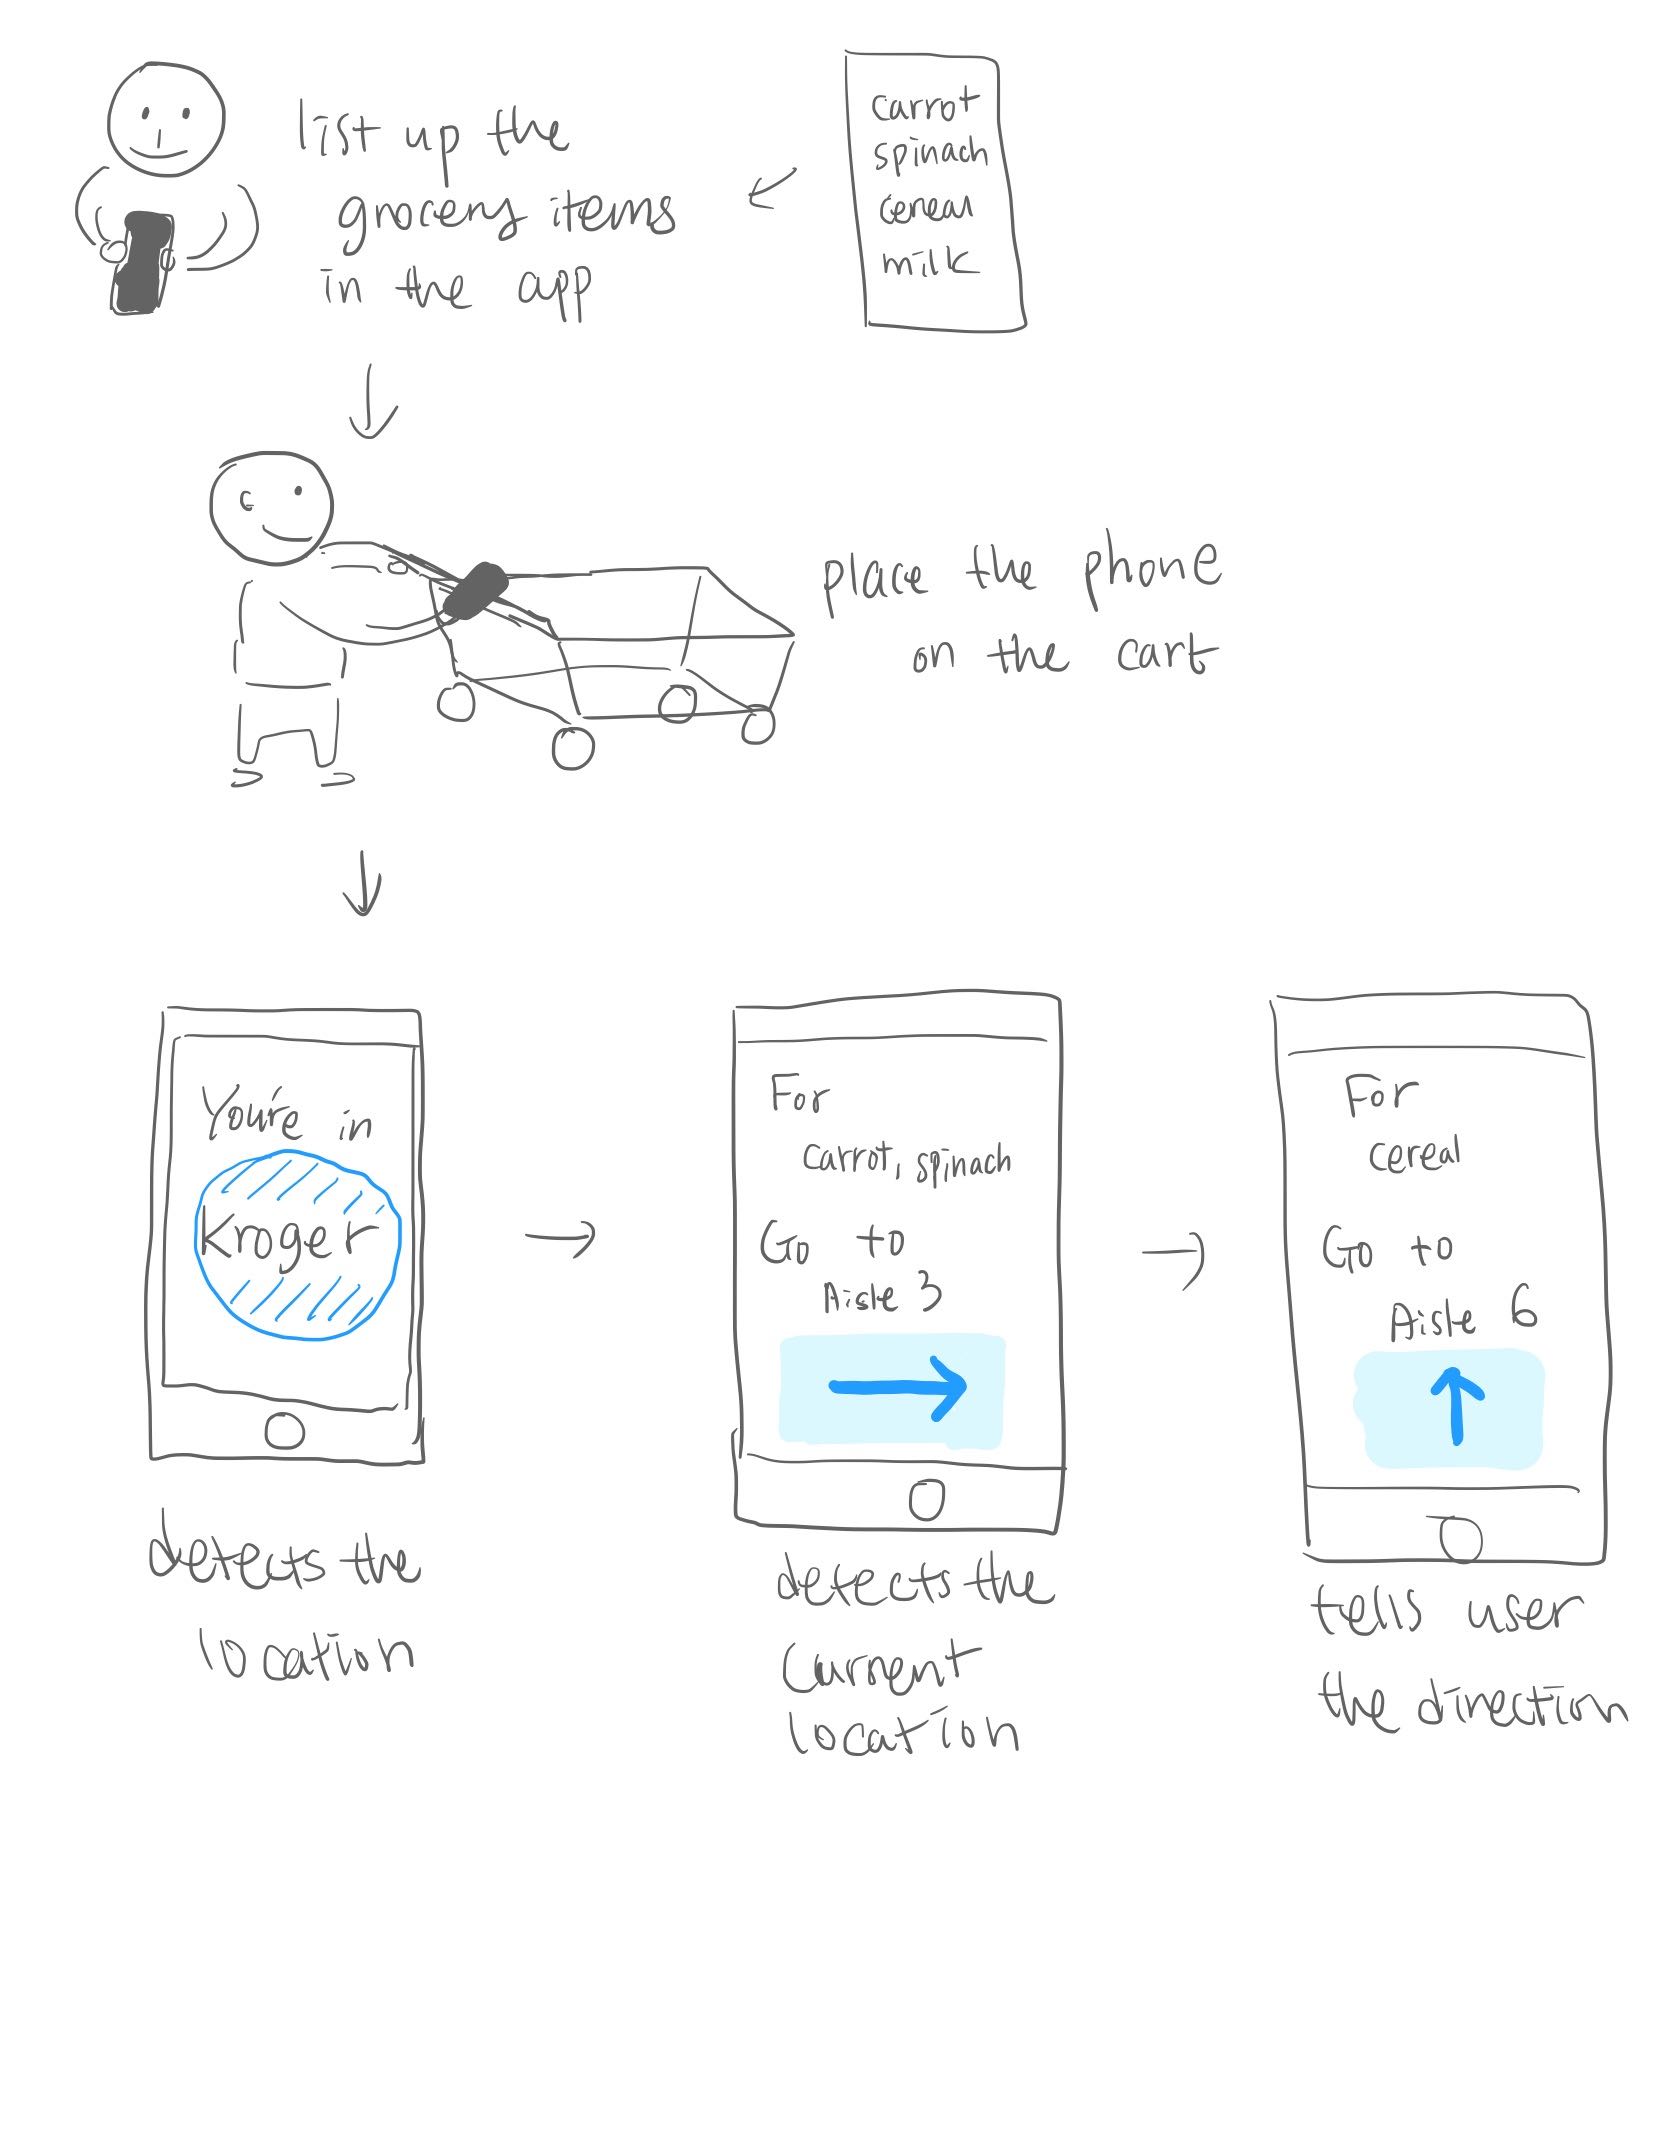 list up the
grocery items
in the app
carrot
spinach
cereal
milk
place the phone
on the cart
You're in
Kroger
detects the
location
For
carrot, spinach
Go to
Aisle 3
detects the
current
location
For
cereal
Go to
Aisle 6
tells user
the direction